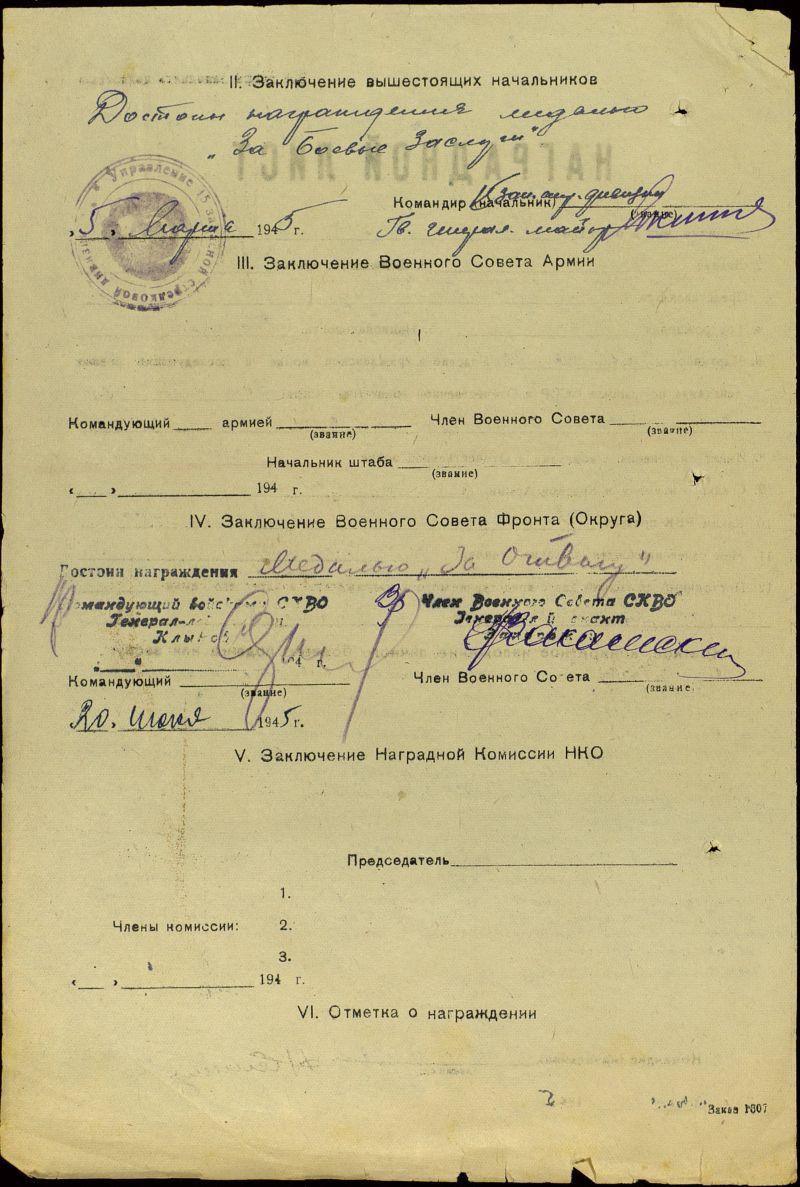 II. Заключение вышестоящих начальников
Достоин награждения медалью
„За Боевые Заслуги"
НАГРАДНОЙ ЛИСТ
Управление 15 Запасной стрелковой дивизии
Командир (начальник) 15 зап. стр. дивизии
(звание)
„5" Марта 1945 г.
Гв. генерал-майор
III. Заключение Военного Совета Армии
Командующий армией Член Военного Совета
(звание) (звание)
Начальник штаба
(звание)
« » 194 г.
IV. Заключение Военного Совета Фронта (Округа)
Достоин награждения Медалью „За Отвагу"
Командующий войсками СКВО Член Военного Совета СКВО
Генерал-
194 г.
Командующий Член Военного Совета
(звание) (звание)
20. Июня 1945 г.
V. Заключение Наградной Комиссии НКО
Председатель
1.
Члены комиссии: 2.
3.
« » 194 г.
VI. Отметка о награждении
Заказ 1307